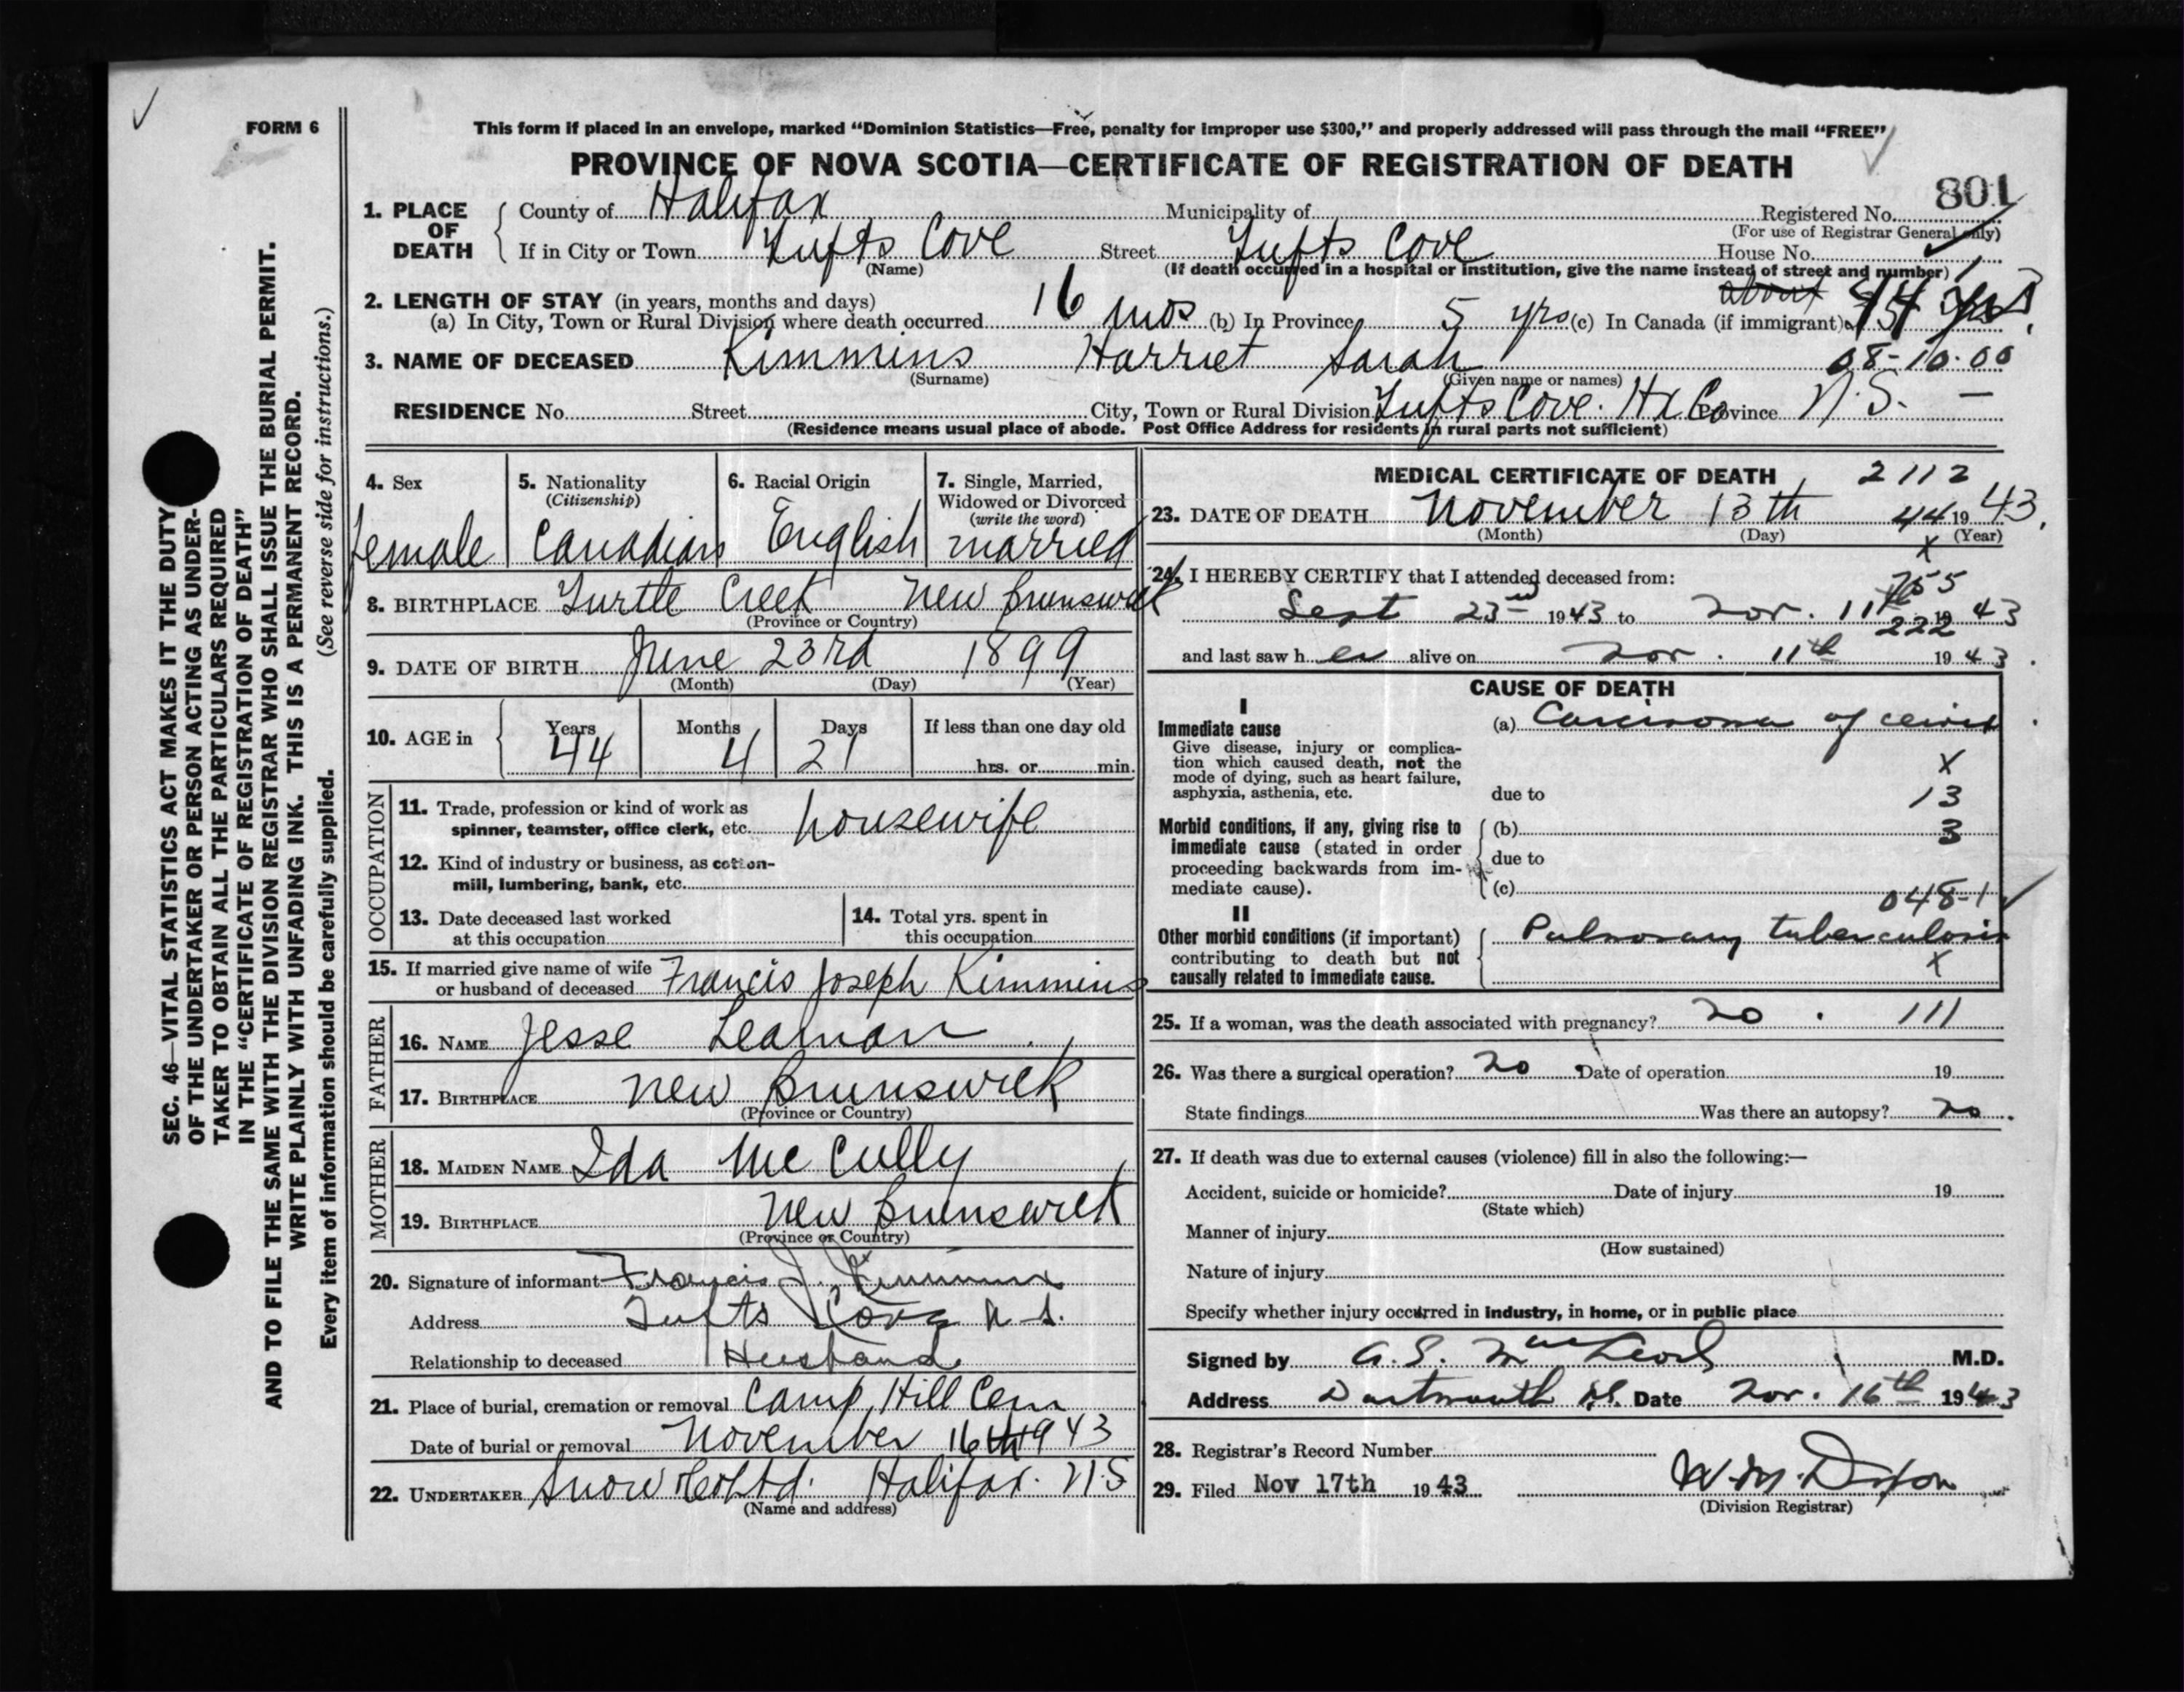 FORM 6
This form if placed in an envelope, marked “Dominion Statistics—Free, penalty for improper use $300,” and properly addressed will pass through the mail “FREE”
PROVINCE OF NOVA SCOTIA—CERTIFICATE OF REGISTRATION OF DEATH
801
1. PLACE OF DEATH
County of Halifax Municipality of Registered No.
(For use of Registrar General only)
If in City or Town Tufts Cove Street Tufts Cove House No.
(Name) (If death occurred in a hospital or institution, give the name instead of street and number)
2. LENGTH OF STAY (in years, months and days) about
(a) In City, Town or Rural Division where death occurred 16 mos (b) In Province 5 yrs (c) In Canada (if immigrant) 44 yrs
3. NAME OF DECEASED Kimmins Harriet Sarah 08-10-00
(Surname) (Given name or names)
RESIDENCE No. Street City, Town or Rural Division Tufts Cove. Hx Co Province N.S. —
(Residence means usual place of abode. Post Office Address for residents in rural parts not sufficient)
4. Sex
Female
5. Nationality
(Citizenship)
Canadian
6. Racial Origin
English
7. Single, Married,
Widowed or Divorced
(write the word)
married
8. BIRTHPLACE Turtle Creek New Brunswick
(Province or Country)
9. DATE OF BIRTH June 23rd 1899
(Month) (Day) (Year)
10. AGE in
Years Months Days If less than one day old
44 4 21 hrs. or min.
OCCUPATION
11. Trade, profession or kind of work as
spinner, teamster, office clerk, etc. housewife
12. Kind of industry or business, as cotton-
mill, lumbering, bank, etc.
13. Date deceased last worked
at this occupation
14. Total yrs. spent in
this occupation
15. If married give name of wife
or husband of deceased Francis Joseph Kimmins
FATHER
16. NAME Jesse Leaman
17. BIRTHPLACE New Brunswick
(Province or Country)
MOTHER
18. MAIDEN NAME Ida McCully
19. BIRTHPLACE New Brunswick
(Province or Country)
20. Signature of informant Francis J. Kimmins
Address Tufts Cove N.S.
Relationship to deceased Husband
21. Place of burial, cremation or removal Camp Hill Cem
Date of burial or removal November 16th 1943
22. UNDERTAKER Snow & Co Ltd. Halifax. N.S
(Name and address)
MEDICAL CERTIFICATE OF DEATH 2112
23. DATE OF DEATH November 13th 44 1943.
(Month) (Day) (Year)
X
24. I HEREBY CERTIFY that I attended deceased from:
Sept 23rd 1943 to Nov. 11th 1943
222
and last saw her alive on Nov. 11th 1943.
CAUSE OF DEATH
I
Immediate cause
Give disease, injury or complica-
tion which caused death, not the
mode of dying, such as heart failure,
asphyxia, asthenia, etc.
(a) Carcinoma of cervix
X
due to 13
Morbid conditions, if any, giving rise to
immediate cause (stated in order
proceeding backwards from im-
mediate cause).
(b) 3
due to
(c) 048-1
II
Other morbid conditions (if important)
contributing to death but not
causally related to immediate cause.
Pulmonary tuberculosis
X
25. If a woman, was the death associated with pregnancy? no. 111
26. Was there a surgical operation? no Date of operation 19
State findings Was there an autopsy? no.
27. If death was due to external causes (violence) fill in also the following:—
Accident, suicide or homicide? Date of injury 19
(State which)
Manner of injury
(How sustained)
Nature of injury
Specify whether injury occurred in industry, in home, or in public place
Signed by A. S. MacLeod M.D.
Address Dartmouth N.S. Date Nov. 16th 1943
28. Registrar's Record Number
29. Filed Nov 17th 1943 W. M. Dixon
(Division Registrar)
SEC. 46—VITAL STATISTICS ACT MAKES IT THE DUTY
OF THE UNDERTAKER OR PERSON ACTING AS UNDER-
TAKER TO OBTAIN ALL THE PARTICULARS REQUIRED
IN THE “CERTIFICATE OF REGISTRATION OF DEATH”
AND TO FILE THE SAME WITH THE DIVISION REGISTRAR WHO SHALL ISSUE THE BURIAL PERMIT.
WRITE PLAINLY WITH UNFADING INK. THIS IS A PERMANENT RECORD.
Every item of information should be carefully supplied. (See reverse side for instructions.)